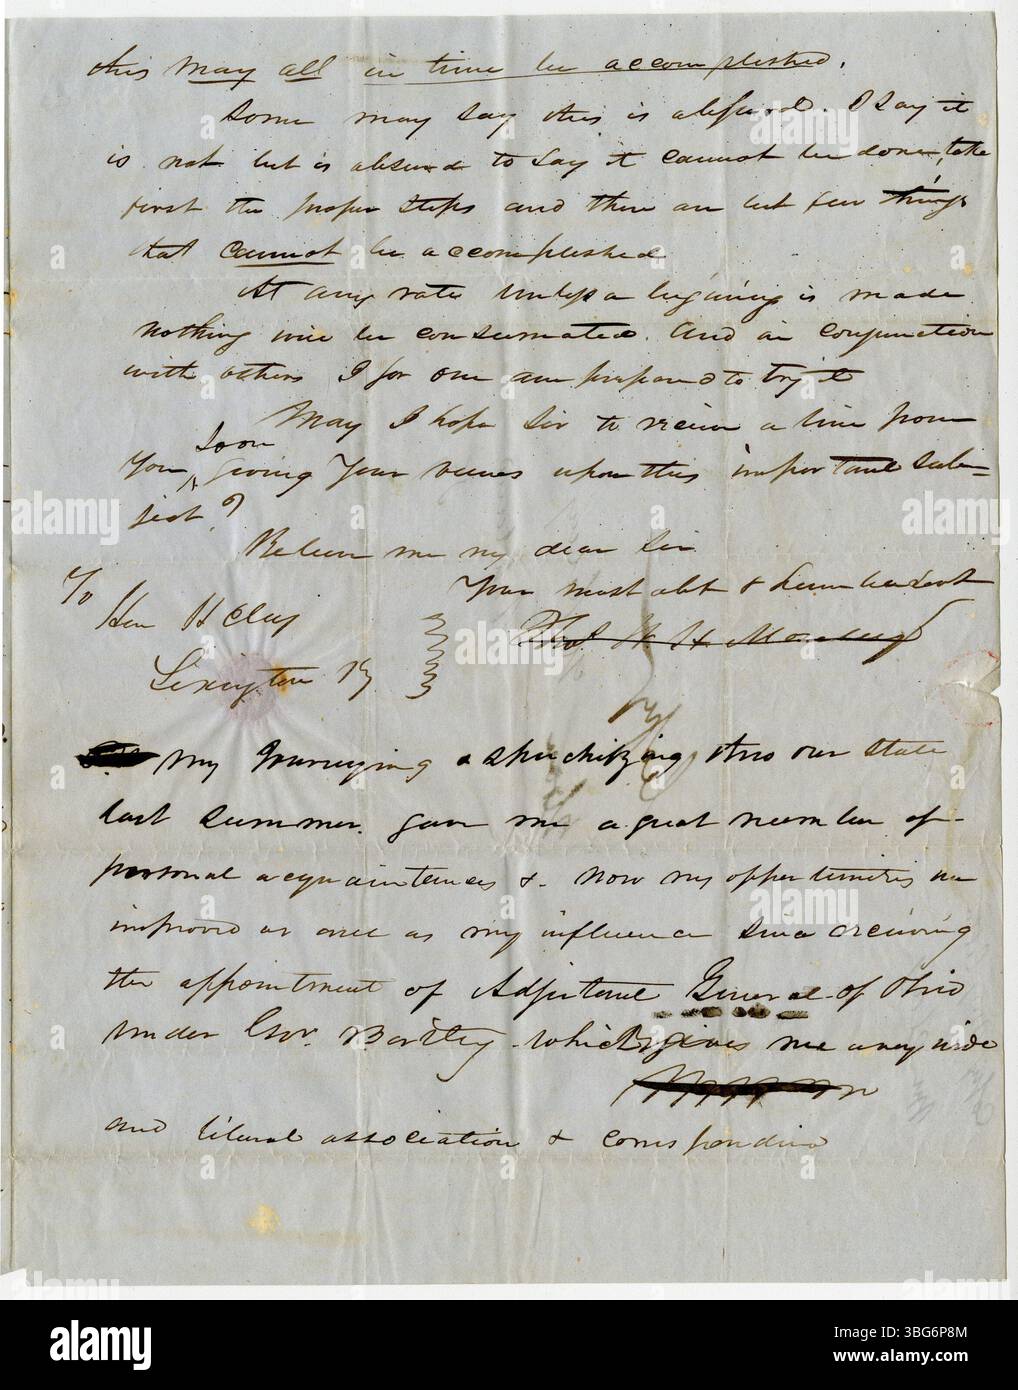 this may all in time be accomplished.
Some may say this is absurd. I say it
is not but is absurd to say it cannot be done, take
first the proper steps and there are but few things
that cannot be accomplished
At any rate unless a begining is made
nothing will be consumated. And in conjunction
with others I for one am prepared to try it
May I hope Sir to receive a line from
You soon giving Your views upon this important sub-
ject?
Believe me my dear Sir
Your most obt & humble Servt
To
Hon H Clay
Lexington Ky
my journeying & speechifying thro our State
last Summer. gave me a great number of
personal acquaintences &. Now my opportunities are
improved as well as my influence since receiving
the appointment of Adjutant General of Ohio
under Gov. Bartley which gives me a very wide
and liberal association & correspondence
alamy
alamy
Image ID: 3BG6P8M
www.alamy.com